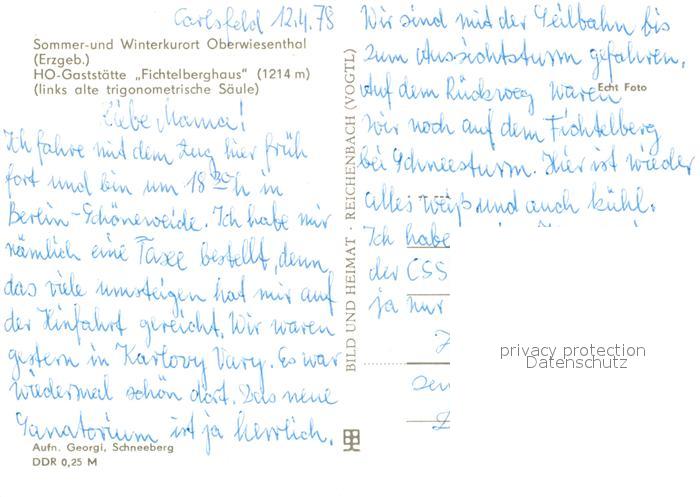 Carlsfeld 12.4.78
Sommer-und Winterkurort Oberwiesenthal
(Erzgeb.)
HO-Gaststätte „Fichtelberghaus" (1214 m)
(links alte trigonometrische Säule)
Liebe Mama!
Ich fahre mit dem Zug hier früh
fort und bin um 18 30 h in
Berlin-Schöneweide. Ich habe mir
nämlich eine Taxe bestellt, denn
das viele umsteigen hat mir auf
der Hinfahrt gereicht. Wir waren
gestern in Karlovy Vary. Es war
wiedermal schön dort. Das neue
Sanatorium ist ja herrlich.
Aufn. Georgi, Schneeberg
DDR 0,25 M
BILD UND HEIMAT · REICHENBACH (VOGTL)
Wir sind mit der Seilbahn bis
zum Aussichtsturm gefahren.
Auf dem Rückweg waren
Echt Foto
wir noch auf dem Fichtelberg
bei Schneesturm. Hier ist wieder
alles weiß und auch kühl.
Ich habe
der CSS
ja nur
privacy protection
Datenschutz